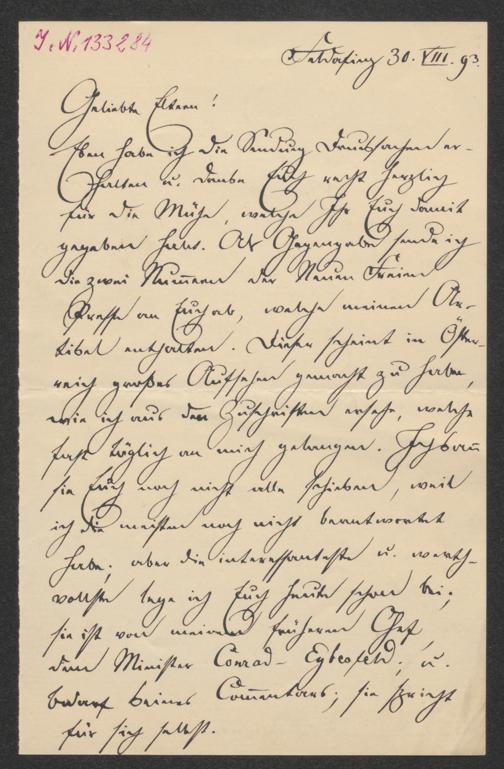 J. N. 133284
Feldafing 30. VIII. 93.
Geliebte Eltern!
Eben habe ich die Sendung Drucksachen er-
halten u. danke Euch recht herzlich
für die Mühe, welche Ihr Euch damit
gegeben habt. Als Gegengabe sende ich
die zwei Num̄ern der Neuen Freien
Presse an Euch ab, welche meinen Ar-
tikel enthalten. Dieser scheint in Öster-
reich großes Aufsehen gemacht zu haben,
wie ich aus den Zuschriften ersehe, welche
fast täglich an mich gelangen. Ich kan̄
sie Euch noch nicht alle schicken, weil
ich die meisten noch nicht beantwortet
habe; aber die interessanteste u. werth-
vollste lege ich Euch heute schon bei;
sie ist von meinem früheren Chef,
dem Minister Conrad-Eybesfeld; u.
bedarf keines Com̄entars; sie spricht
für sich selbst.